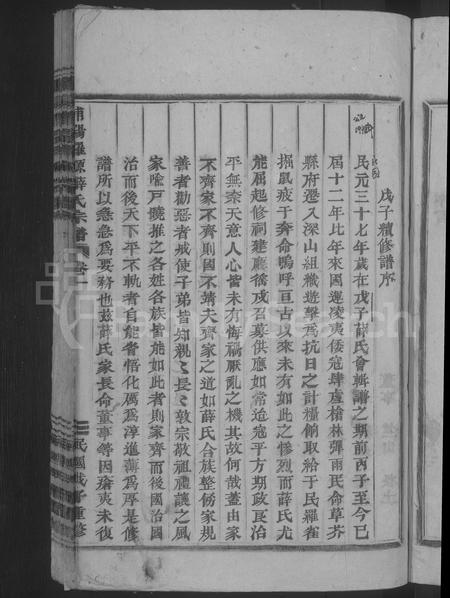 戊子續修譜序
民元三十七年歲在戊子薛氏會輯譜之期前丙子至今已
屆十二年比年來國運凌夷倭寇肆虐槍林彈雨民命草芥
縣府遷入深山組織遊擊為抗日之計糧餉取給于民羅雀
掘鼠疲于奔命嗚呼亘古以來未有如此之慘烈而薛氏尤
能屈起修祠建廳後戍召募供應如常迨寇平方期政良治
平無奈天意人心皆未有悔禍厭亂之機其故何哉蓋由家
不齊家不齊則國不靖夫齊家之道如薛氏合族整傛家規
善者勸惡者戒使子弟皆知親〻長〻敦宗敬祖禮讓之風
家喻戶曉推之各姓各族皆能如此者則家齊而後國治國
治而後天下平不軌者自能者悟化厲為淳進薄為厚是修
譜所以急急為要務也茲薛氏家長命董事等因瘡夷未復
浦陽羅源薛氏宗譜
卷
民國戊子重修